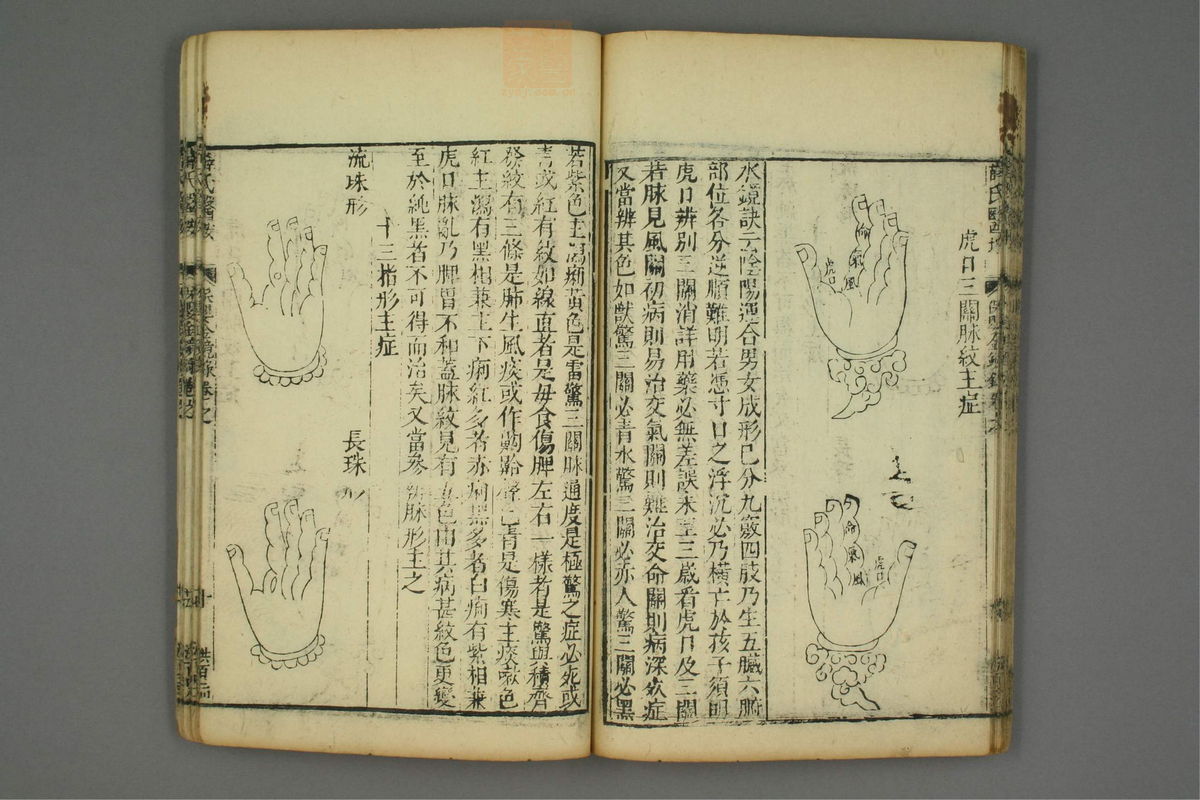 虎口三關脉紋主症
命
氣
風
虎口
命
氣
風
虎口
水鏡訣云陰陽運合男女成形已分九竅四肢乃生五臟六腑
部位各分逆順難明若憑寸口之浮沉必乃橫亡於孩子須明
虎口辨別三關消詳用藥必無差誤未至三歲看虎口及三關
若脉見風關初病則易治交氣關則難治交命關則病深欬症
又當辨其色如獸驚三關必青水驚三關必赤人驚三關必黑
若紫色主瀉痢黃色是雷驚三關脉通度是極驚之症必死或
青或紅有紋如線直者是母食傷脾左右一樣者是驚與積齊
發紋有三條是肺生風痰或作齁䶎聲色青是傷寒主痰嗽色
紅主瀉有黑相兼主下痢紅多者赤痢黑多者白痢有紫相兼
虎口脉亂乃脾胃不和蓋脉紋見有五色由其病甚紋色更變
至於純黑者不可得而治矣又當參 脉形主之
十三指形主症
流珠形
長珠
薛氏醫按